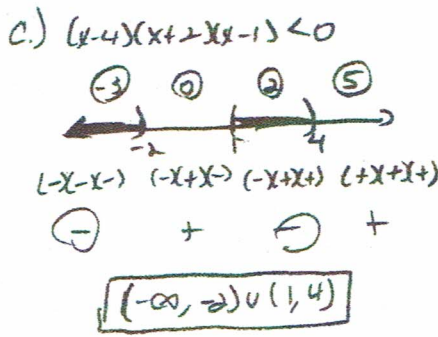 c.) (x-4)(x+2)(x-1) < 0
-3 0 2 5
-2 1 4
(-)(-)(-) (-)(+)(-) (-)(+)(+) (+)(+)(+)
- + - +
(-∞, -2) ∪ (1, 4)